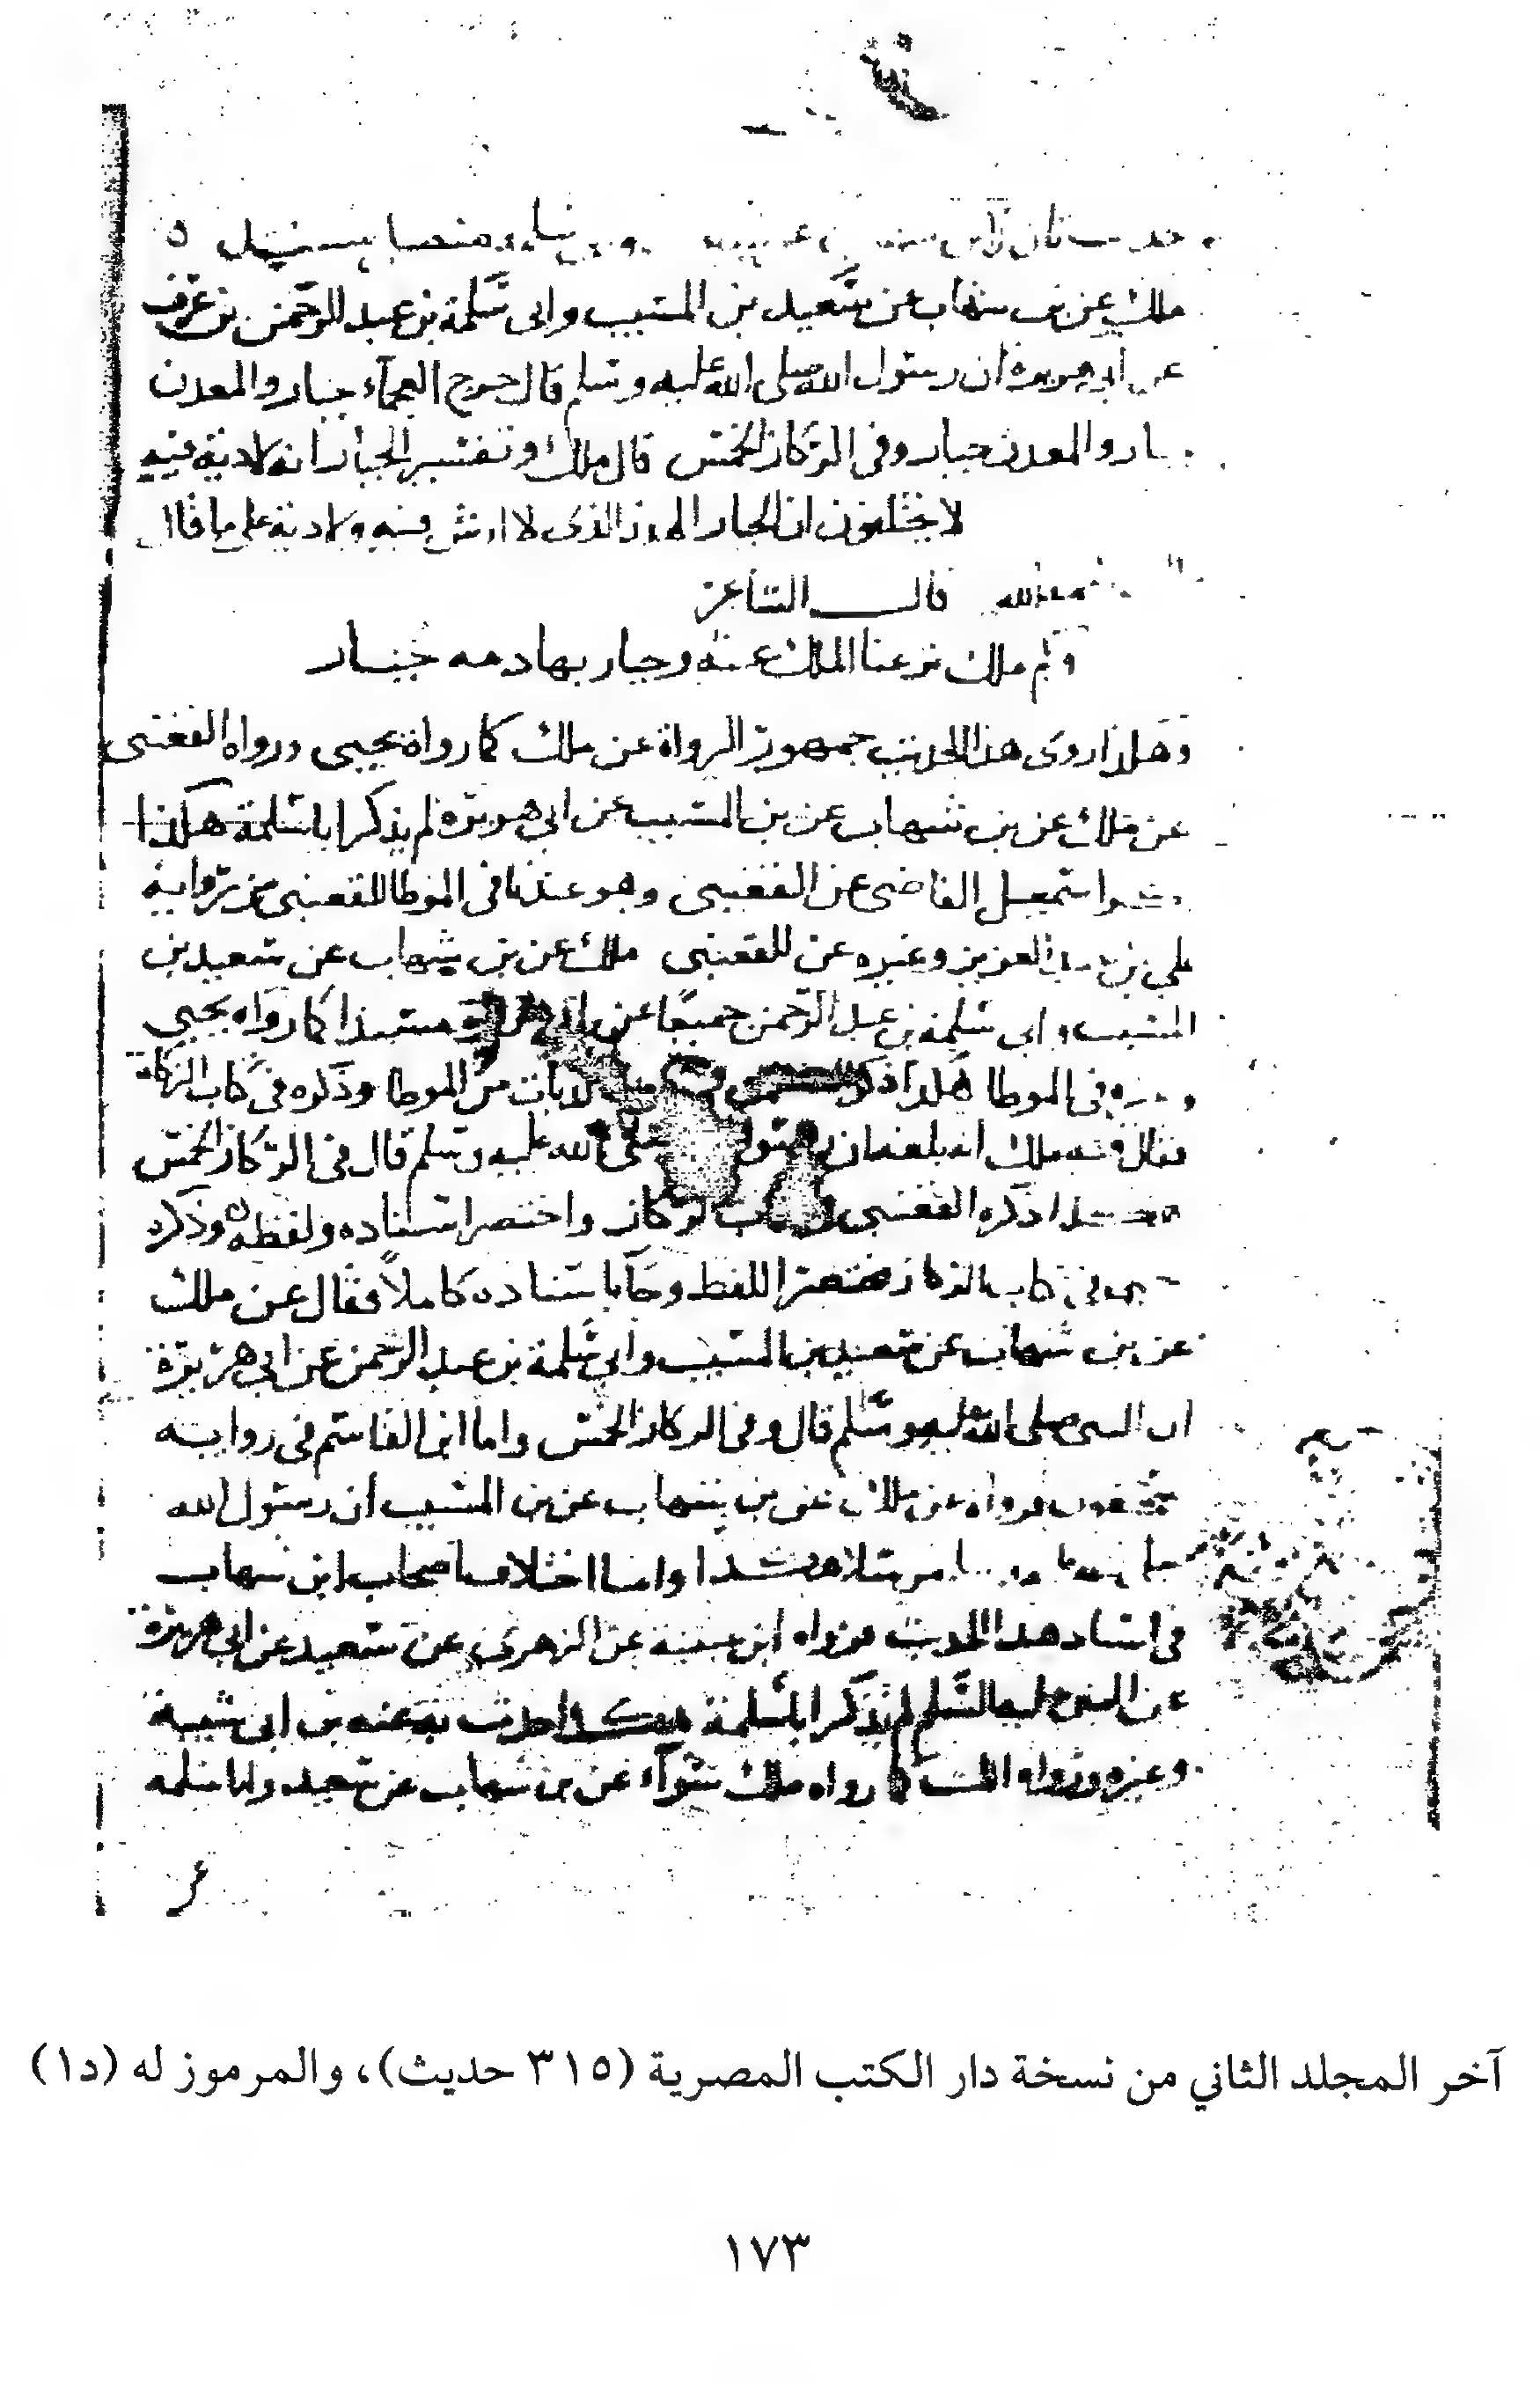 ملك عن بن شهاب عن سعيد بن المسيب وابى سلمة بن عبد الرحمن بن عوف
عن ابى هريرة ان رسول الله صلى الله عليه وسلم قال جرح العجماء جبار والمعدن
والمعدن جبار وفى الركاز الخمس قال ملك وتفسير الجبار انه لا دية فيه
لا يختلفون ان الجبار الهدر الذى لا ارش فيه ولا دية على ما قال
الله قال الشاعر
وكم ملك نزعنا الملك عنه وجبار بها دمه جبار
وهكذا روى هذا الحديث جمهور الرواة عن ملك كما رواه يحيى ورواه القعنبى
عن ملك عن بن شهاب عن بن المسيب عن ابى هريرة لم يذكر ابا سلمة هكذا
اسمعيل القاضى عن القعنبى وهو عندنا فى الموطا للقعنبى من رواية
على بن عبد العزيز وغيره عن القعنبى ملك عن بن شهاب عن سعيد بن
المسيب وابى سلمة بن عبد الرحمن جميعا عن ابى هريرة مسندا كما رواه يحيى
وغيره فى الموطا هكذا ذكره القعنبى فى الديات من الموطا وذكره فى كتاب الزكاة
فقال فيه ملك انه بلغه ان رسول الله صلى الله عليه وسلم قال فى الركاز الخمس
هكذا ذكره القعنبى فى باب الركاز واختصر اسناده ولفظه وذكره
يحيى فى كتاب الزكاة مختصر اللفظ وجا باسناده كاملا فقال عن ملك
عن بن شهاب عن سعيد بن المسيب وابى سلمة بن عبد الرحمن عن ابى هريرة
ان النبى صلى الله عليه وسلم قال وفى الركاز الخمس واما ابن القاسم فى روايه
سحنون فرواه عن ملك عن بن شهاب عن بن المسيب ان رسول الله
مرسلا هكذا واما اختلاف اصحاب ابن شهاب
فى اسناد هذا الحديث فرواه ابن عيينة عن الزهرى عن سعيد عن ابى هريرة
عن النبى عليه السلم لم يذكر ابا سلمة هكذا حدث به عنه بن ابى شيبة
وغيره ورواه الليث كما رواه ملك سواء عن بن شهاب عن سعيد وابى سلمه
آخر المجلد الثاني من نسخة دار الكتب المصرية (٣١٥ حديث)، والمرموز له (د١)
١٧٣